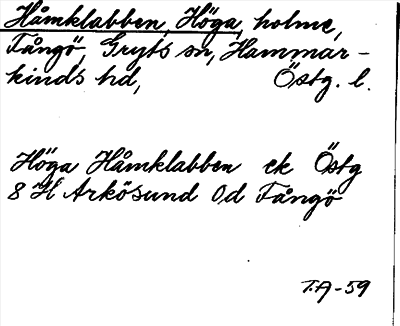 Håmklabben, Höga, holme,
Fångö, Gryts sn, Hammar-
kinds hd, Östg. l.
Höga Håmklabben ek Östg
8 H Arkösund 0d Fångö
T.A-59